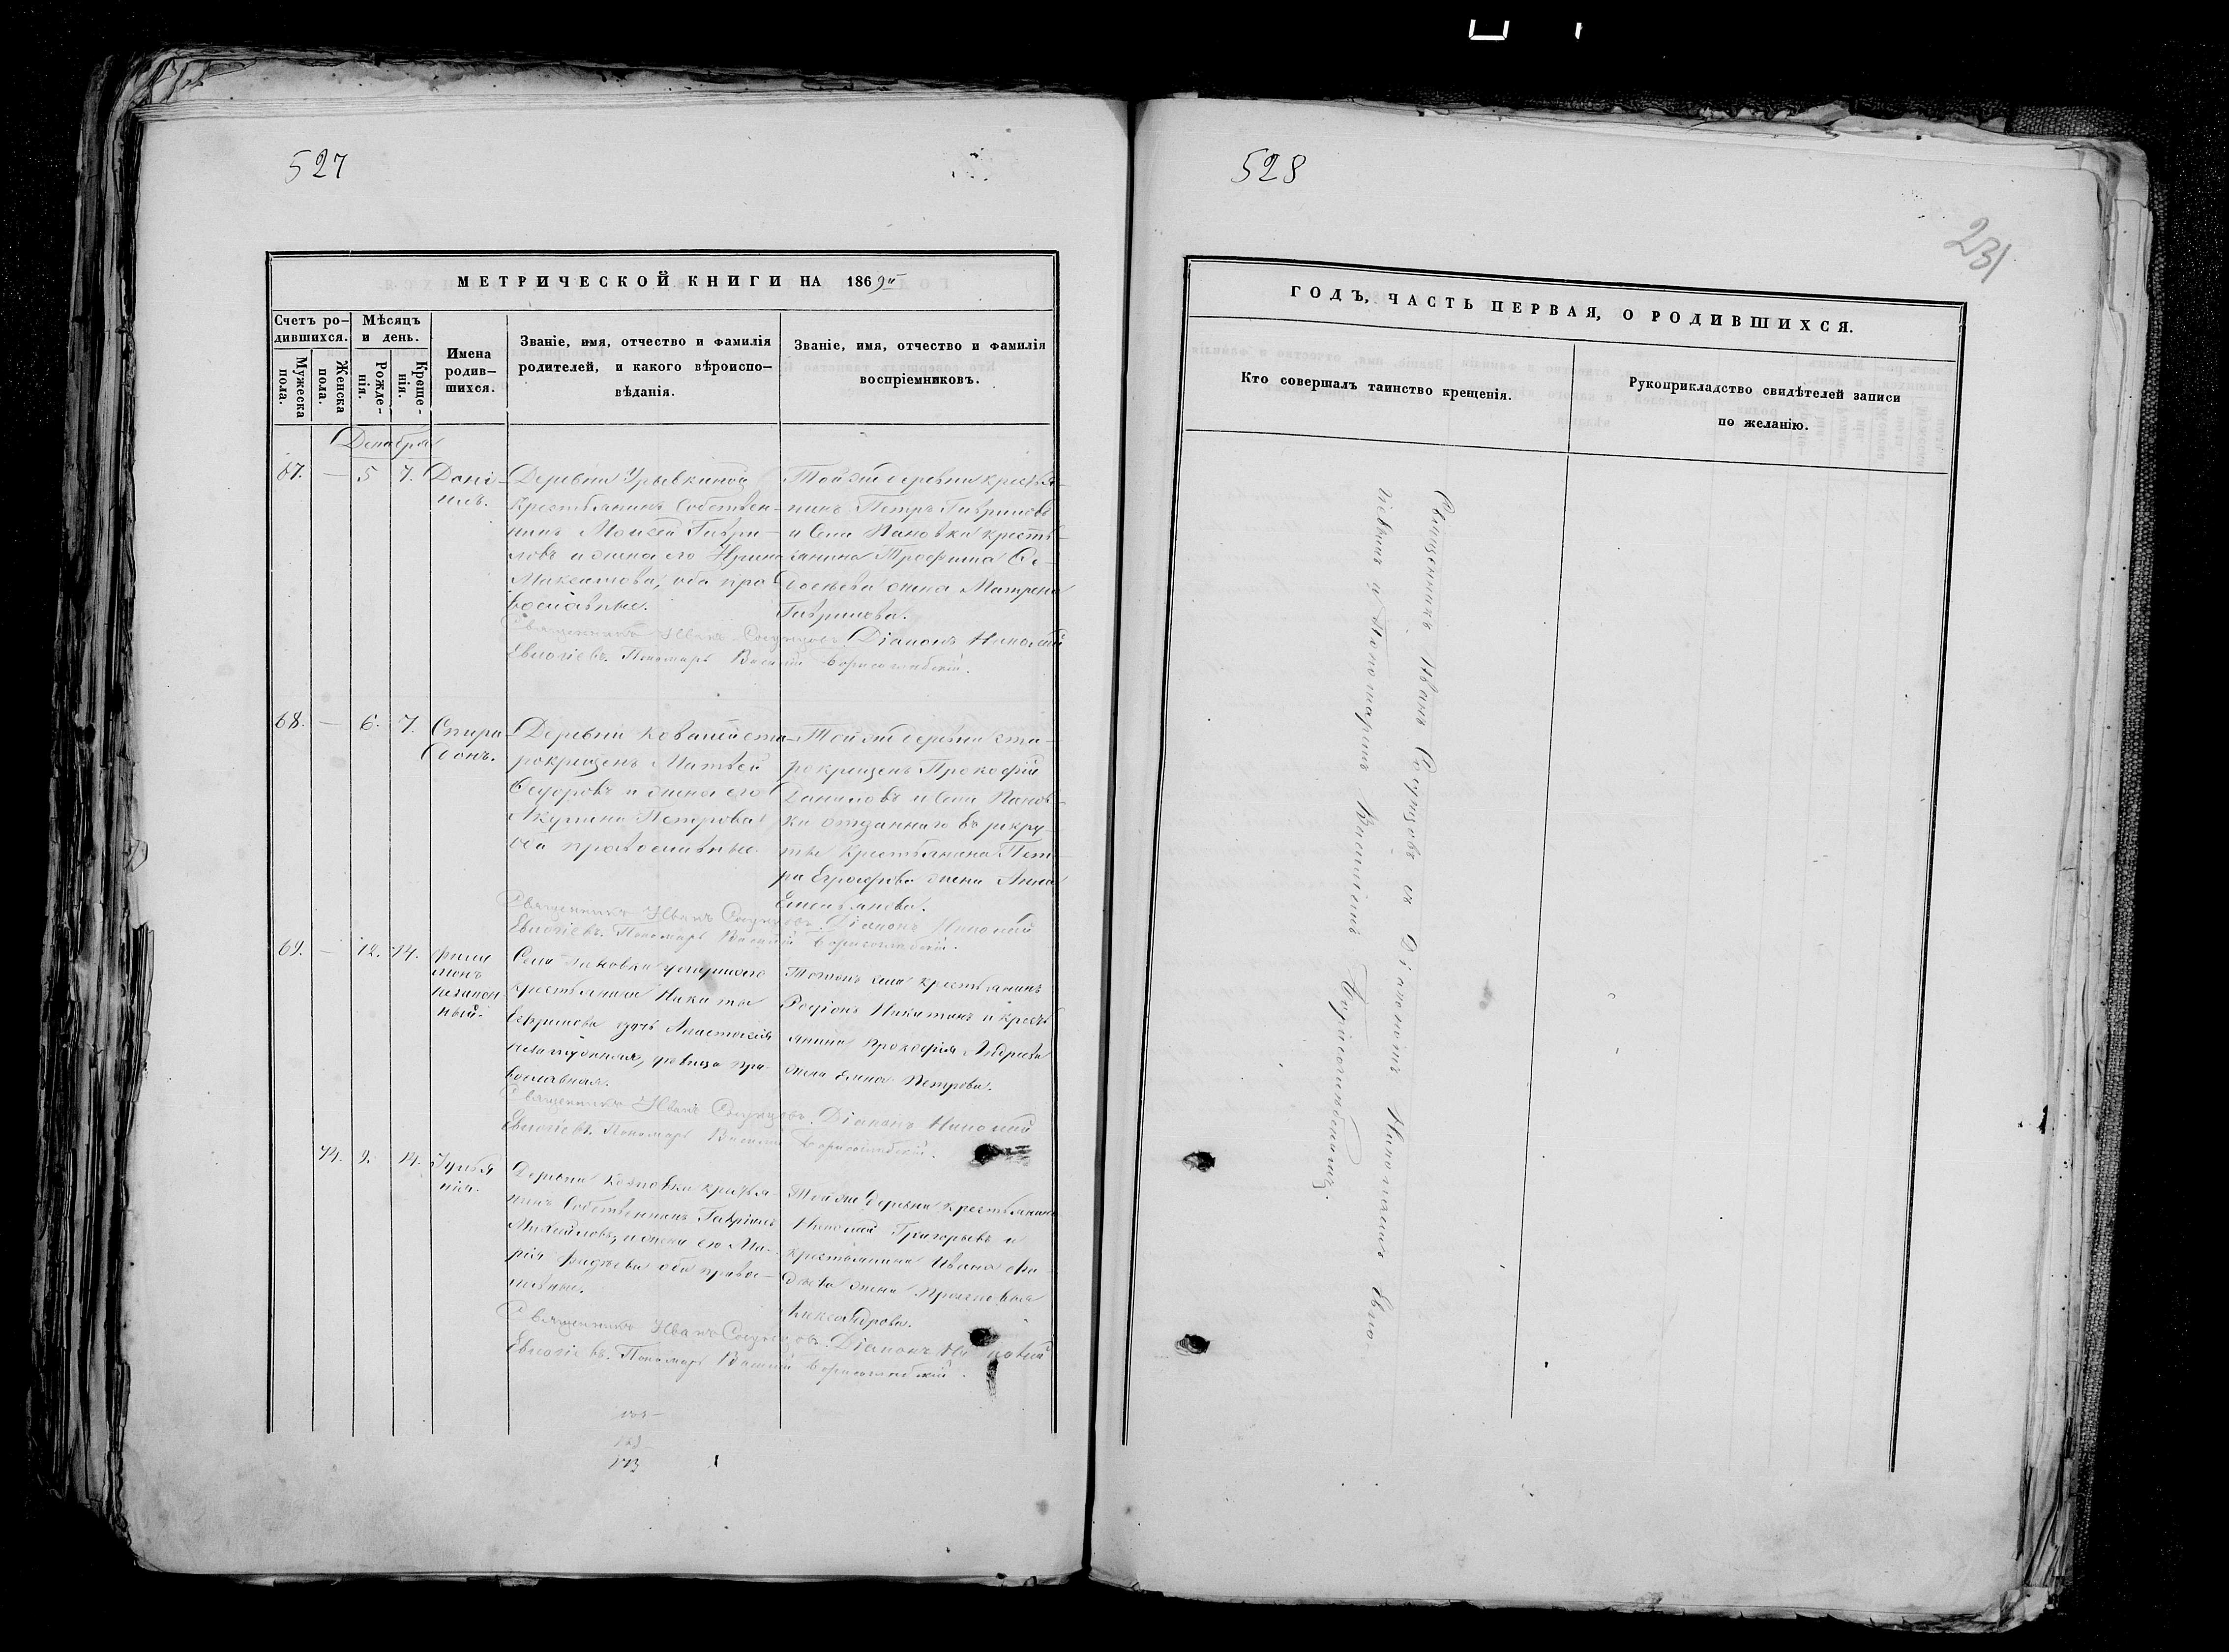 527
МЕТРИЧЕСКОЙ КНИГИ НА 1869й
Счетъ ро-
дившихся.
Мѣсяцъ
и день.
Мужеска
пола.
Женска
пола.
Рожде-
нія.
Креще-
нія.
Имена
родив-
шихся.
Званіе, имя, отчество и фамилія
родителей, и какого вѣроиспо-
вѣданія.
Званіе, имя, отчество и фамилія
воспріемниковъ.
Декабря
67. — 5 7.
Дані-
илъ.
Деревни
Крестьянинъ Собствен-
никъ Моисей Гаври-
ловъ и жена его Ирина
Максимова, оба пра-
вославные.
Той же деревни крестья-
нинъ Петръ Гавриловъ
и Села Пановки кресть-
янина Трофима
жена Матрена
Гаврилова.
Священникъ Иванъ Діаконъ Николай
Евлогіевъ. Пономарь Василій Борисоглебскій.
68. — 6. 7.
Спири-
донъ.
Деревни Ковалей ста-
рокрещенъ Матвей
Федоровъ и жена его
Акулина Петрова
оба православные.
Той же деревни ста-
рокрещенъ Прокофій
Даниловъ и Села Панов-
ки отданнаго въ рекру-
ты Крестьянина Пет-
ра жена Анна
Емельянова.
Священникъ Иванъ Діаконъ Николай
Евлогіевъ. Пономарь Василій Борисоглебскій.
69. — 12. 14.
Фили
монъ
незакон
ный.
Села Пановки умершаго
крестьянина Никиты
дочь Анастасія
незаконная, девица пра-
вославная.
Тогожъ села крестьянинъ
Родіонъ Никитинъ и кресть
янина Прокофія Андреева
жена Елена Петрова.
Священникъ Иванъ Діаконъ Николай
Евлогіевъ. Пономарь Василій Борисоглебскій.
74. 9. 14.
Іулиа
нія.
Деревни крестья-
нинъ Собственникъ Гавріилъ
Михайловъ, и жена его Ма-
рія оба право-
славные.
Той же деревни крестьянинъ
Николай Григорьевъ и
крестьянина Ивана
жена
Александрова.
Священникъ Иванъ Діаконъ Николай
Евлогіевъ. Пономарь Василій Борисоглебскій.
173
528
231
ГОДЪ, ЧАСТЬ ПЕРВАЯ, О РОДИВШИХСЯ.
Кто совершалъ таинство крещенія.
Рукоприкладство свидѣтелей записи
по желанію.
Священникъ Иванъ съ Діакономъ Николаемъ Евло-
гіевымъ и Пономаремъ Василіемъ Борисоглебскимъ.